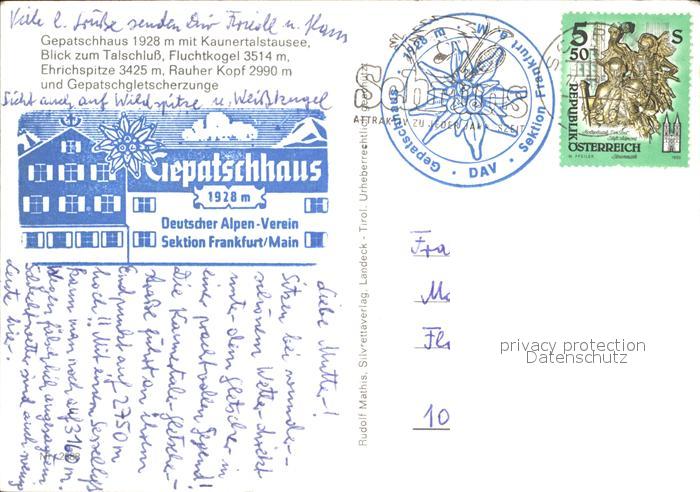 Viele l. Grüße senden Dir Friedl u. Hans
Gepatschhaus 1928 m mit Kaunertalstausee,
Blick zum Talschluß, Fluchtkogel 3514 m,
Ehrichspitze 3425 m, Rauher Kopf 2990 m
und Gepatschgletscherzunge
Sicht auch auf Wildspitze u. Weißkugel
Gepatschhaus
1928 m
Deutscher Alpen-Verein
Sektion Frankfurt/Main
Liebe Mutter!
Sitzen bei wunder-
schönem Wetter direkt
unter dem Gletscher in
einer prachtvollen Gegend!
Die Kaunertaler-Gletscher-
straße führt an ihrem
Endpunkt auf 2750 m
hoch!! Mit einem Sessellift
kann man noch auf 3160 m.
Wegen fälschlich angesagtem
Schlechtwetter sind auch wenig
Leute hier.
Nr. 2688
Rudolf Mathis, Silvrettaverlag, Landeck - Tirol. Urheberrechtlich
Gepatschhaus · 1928 m · Sektion Frankfurt
DAV
ATTRAK
ZU JEDER JAHRESZEIT
5 50
S
REPUBLIK
ÖSTERREICH
Fra
Fl
10
privacy protection
Datenschutz